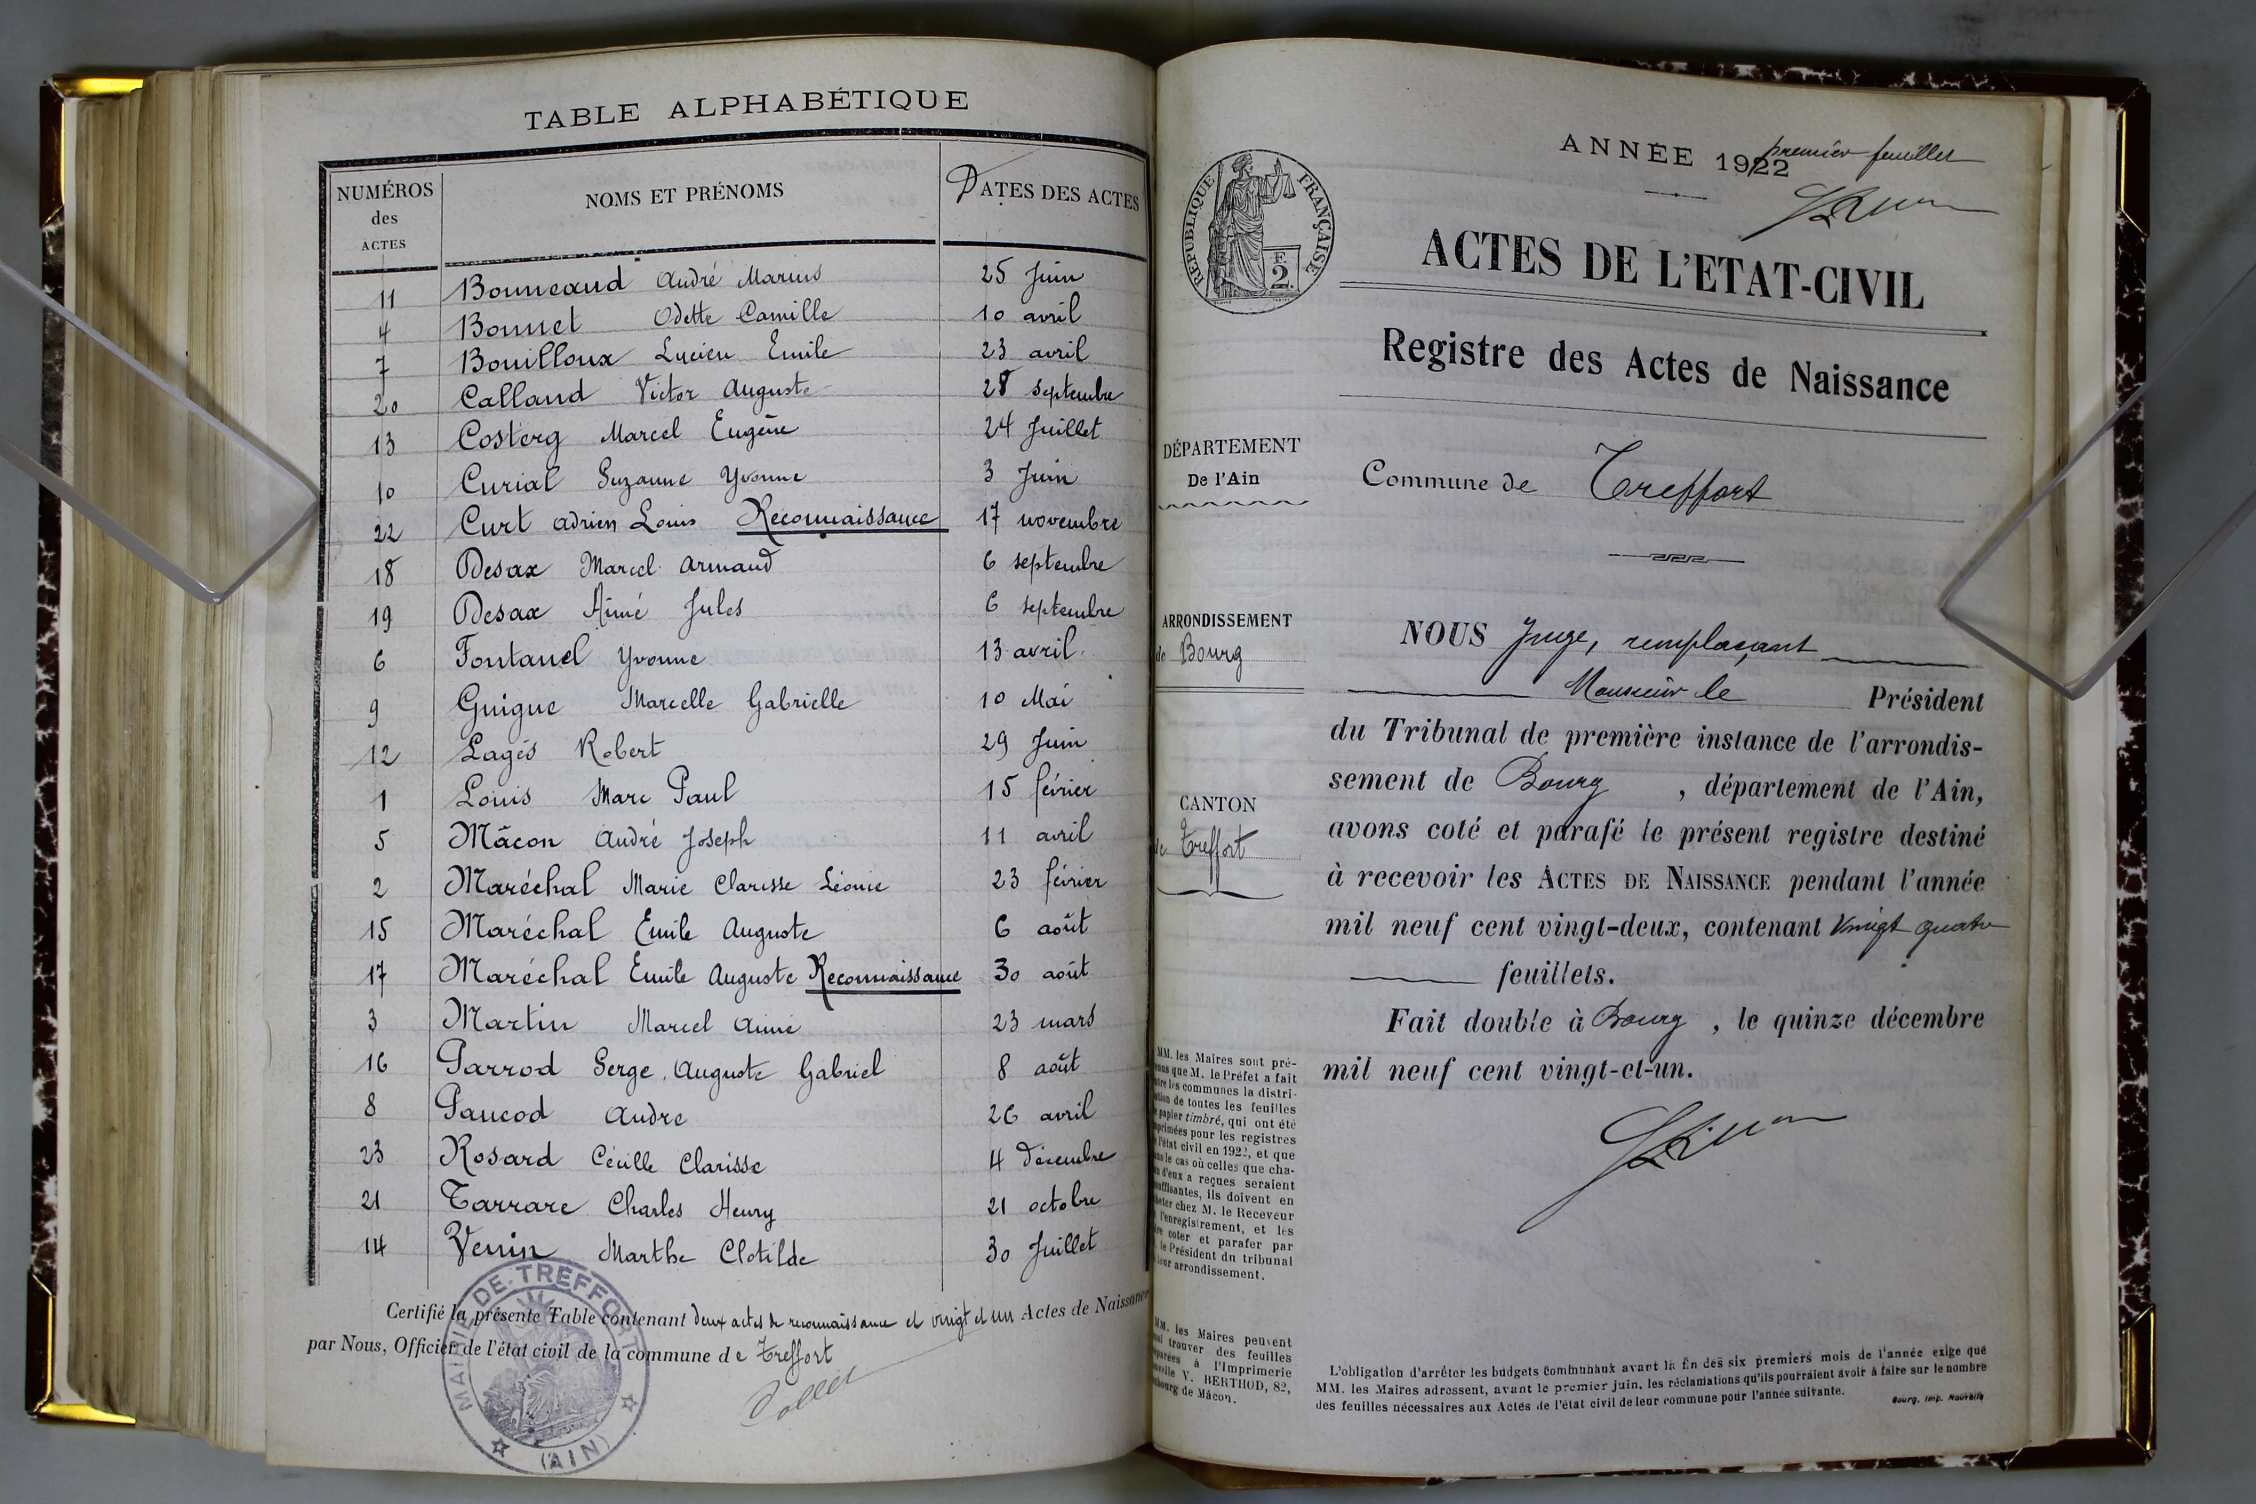 TABLE ALPHABÉTIQUE
NUMÉROS des ACTES NOMS ET PRÉNOMS DATES DES ACTES
11 Bonneaud André Marius 25 Juin
4 Bonnet Odette Camille 10 avril
7 Bouilloux Lucien Emile 23 avril
20 Calland Victor Auguste 28 septembre
13 Costerg Marcel Eugène 24 Juillet
10 Curial Suzanne Yvonne 3 Juin
22 Curt Adrien Louis Reconnaissance 17 novembre
18 Desax Marcel Armand 6 septembre
19 Desax Aimé Jules 6 septembre
6 Fontanel Yvonne 13 avril
9 Guigue Marcelle Gabrielle 10 Mai
12 Lagès Robert 29 Juin
1 Louis Marc Paul 15 février
5 Mâcon André Joseph 11 avril
2 Maréchal Marie Clarisse Léonie 23 février
15 Maréchal Emile Auguste 6 août
17 Maréchal Emile Auguste Reconnaissance 30 août
3 Martin Marcel Aimé 23 mars
16 Parrod Serge Auguste Gabriel 8 août
8 Paucod André 26 avril
23 Rosard Cécille Clarisse 4 décembre
21 Tarrare Charles Henry 21 octobre
14 Venin Marthe Clotilde 30 Juillet
Certifié la présente Table contenant deux actes de reconnaissance et vingt et un Actes de Naissance
par Nous, Officier de l'état civil de la commune de Treffort
MAIRIE DE TREFFORT
(AIN)
ANNÉE 1922
premier feuillet
RÉPUBLIQUE FRANÇAISE
E.
2.
ACTES DE L'ETAT-CIVIL
Registre des Actes de Naissance
DÉPARTEMENT
De l'Ain
Commune de Treffort
ARRONDISSEMENT
de Bourg
CANTON
de Treffort
NOUS Juge, remplaçant
Monsieur le Président
du Tribunal de première instance de l'arrondis-
sement de Bourg, département de l'Ain,
avons coté et parafé le présent registre destiné
à recevoir les ACTES DE NAISSANCE pendant l'année
mil neuf cent vingt-deux, contenant vingt quatre
feuillets.
Fait double à Bourg, le quinze décembre
mil neuf cent vingt-et-un.
MM. les Maires sont pré-
que M. le Préfet a fait
les communes la distri-
de toutes les feuilles
papier timbré, qui ont été
pour les registres
l'état civil en 1922, et que
le cas où celles que cha-
d'eux a reçues seraient
ils doivent en
chez M. le Receveur
l'enregistrement, et les
coter et parafer par
le Président du tribunal
leur arrondissement.
MM. les Maires peuvent
trouver des feuilles
à l'Imprimerie
V. BERTHOD, 82,
de Mâcon.
L'obligation d'arrêter les budgets communaux avant la fin des six premiers mois de l'année exige que
MM. les Maires adressent, avant le premier juin, les réclamations qu'ils pourraient avoir à faire sur le nombre
des feuilles nécessaires aux Actes de l'état civil de leur commune pour l'année suivante.
Bourg, Imp. Nouvelle